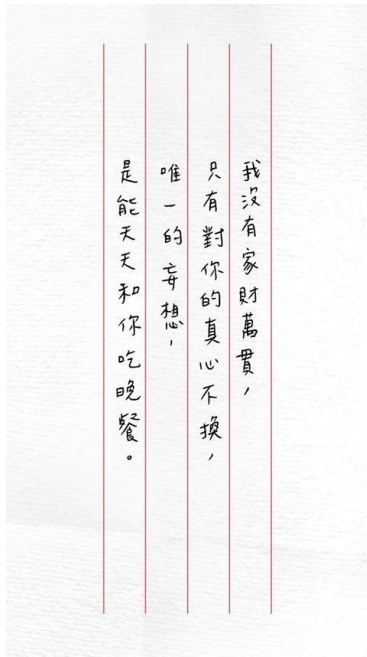 我沒有家財萬貫，
只有對你的真心不換，
唯一的妄想，
是能天天和你吃晚餐。